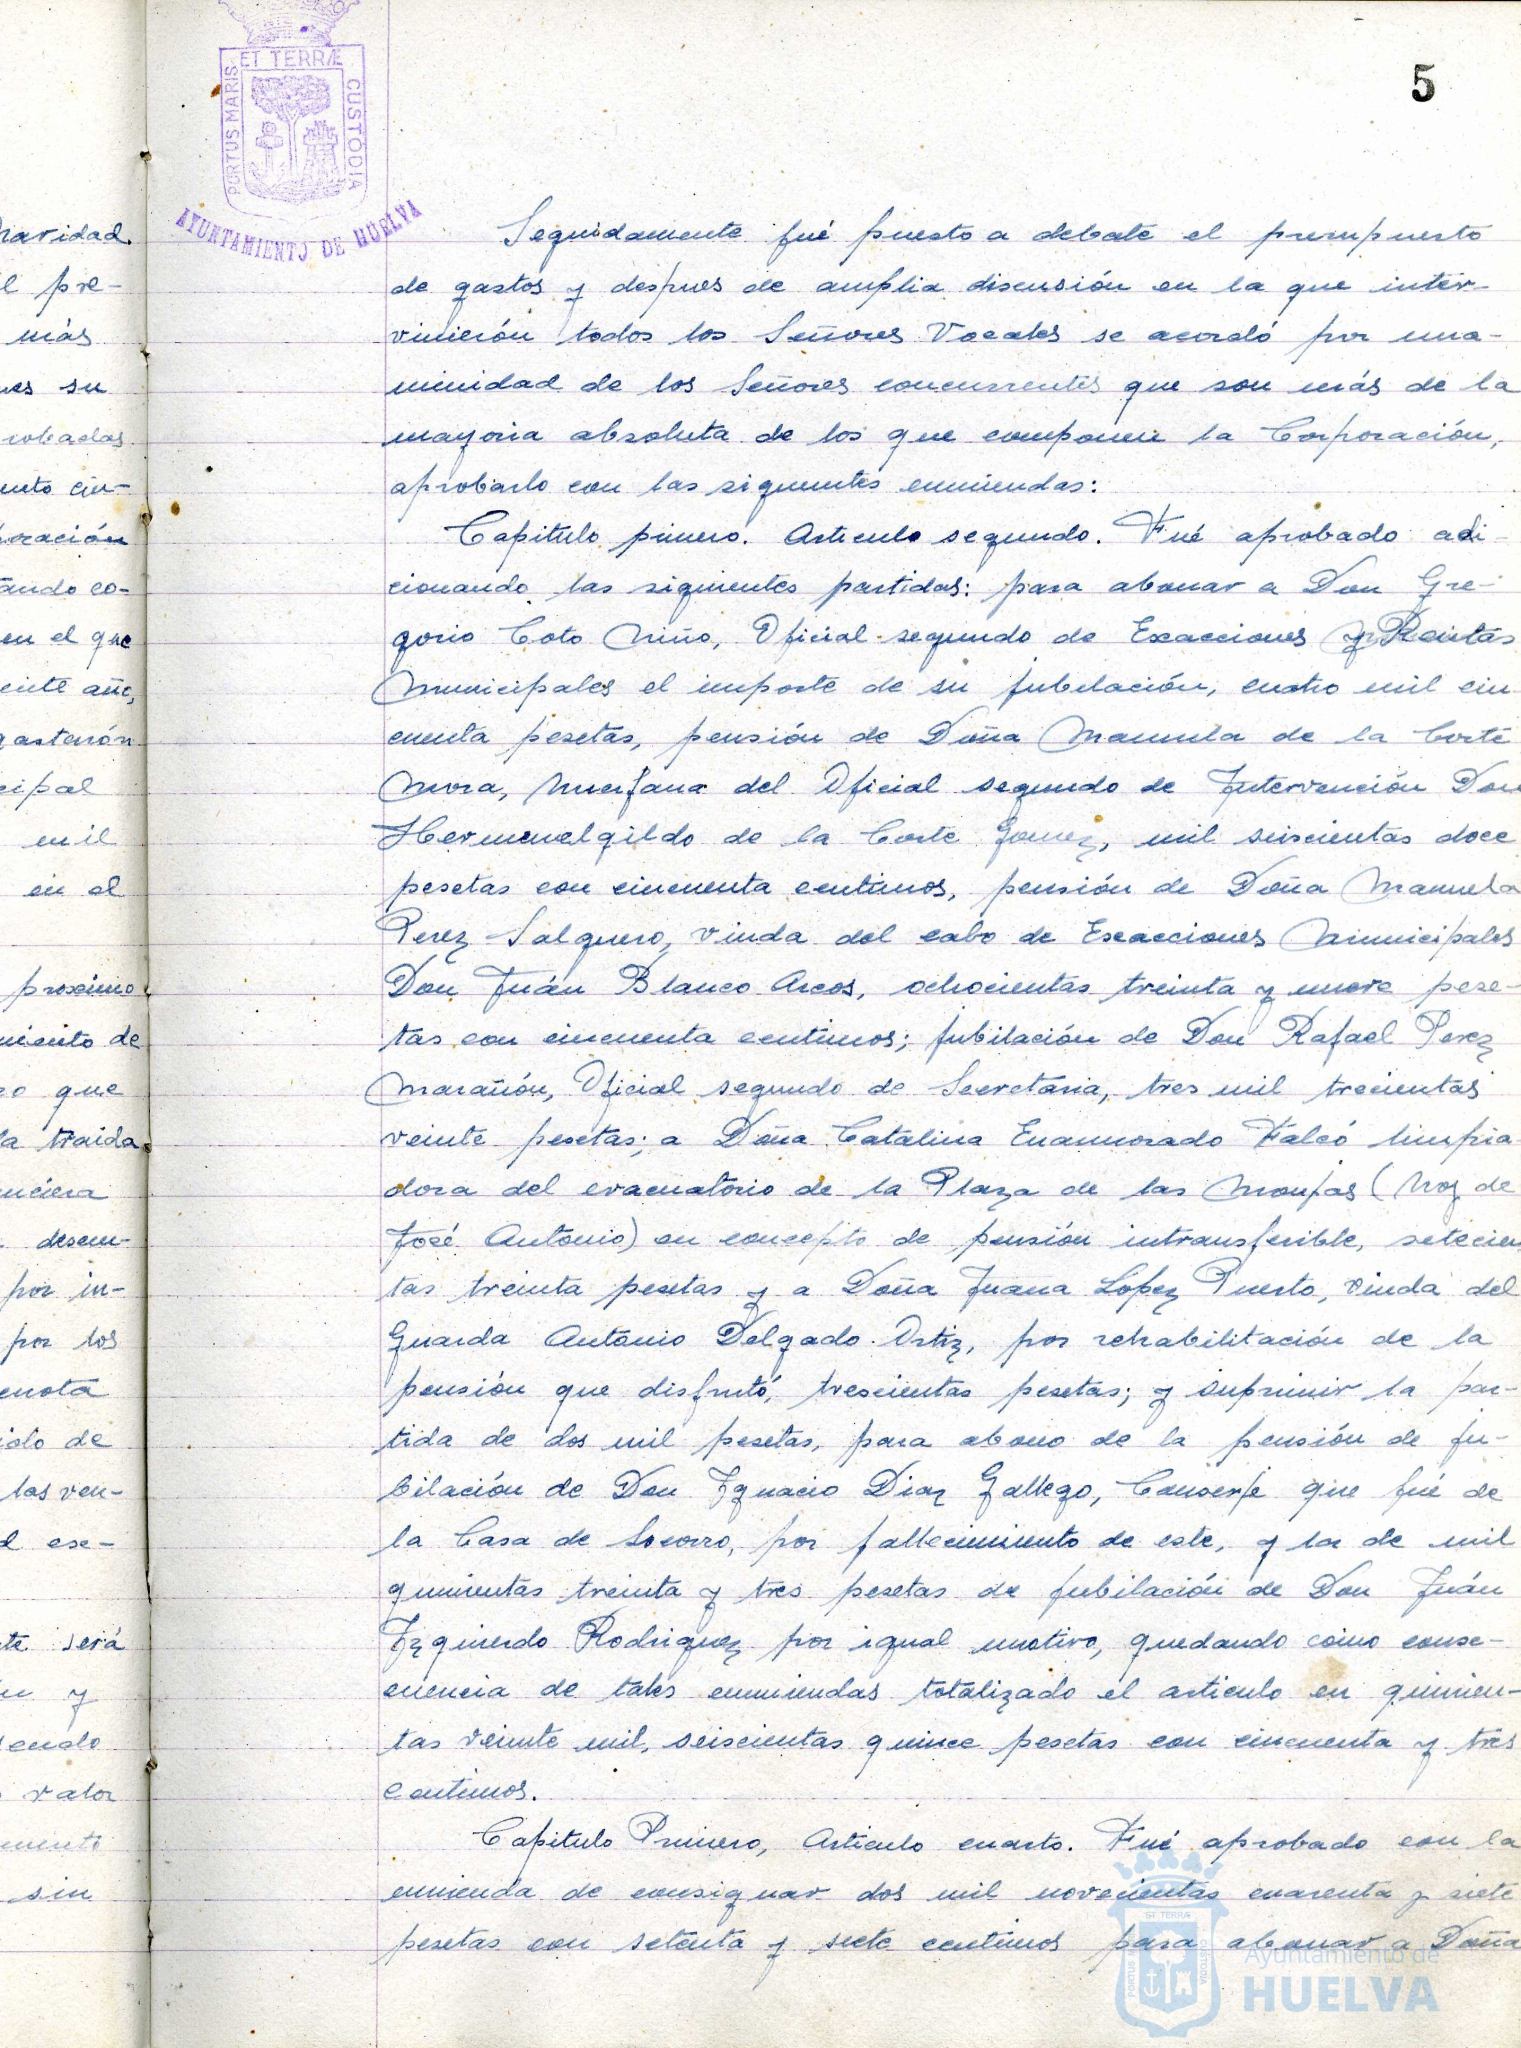 5
PORTUS MARIS
ET TERRÆ
CUSTODIA
AYUNTAMIENTO DE HUELVA
Seguidamente fué puesto a debate el presupuesto
de gastos y despues de amplia discusión en la que inter-
vinierón todos los Señores Vocales se acordó por una-
nimidad de los Señores concurrentes que son más de la
mayoria absoluta de los que componen la Corporación,
aprobarlo con las siguientes enmiendas:
Capitulo primero. Articulo segundo. Fué aprobado adi-
cionando las siguientes partidas: para abonar a Don Gre-
gorio Coto Niño, Oficial segundo de Exacciones y Rentas
Municipales el importe de su jubilación, cuatro mil cin-
cuenta pesetas, pensión de Doña Manuela de la Corte
Mora, huerfana del Oficial segundo de Intervención Don
Hermenelgildo de la Corte Gomez, mil seiscientas doce
pesetas con cincuenta centimos, pensión de Doña Manuela
Perez Salguero, viuda del cabo de Exacciones Municipales
Don Juán Blanco Arcos, ochocientas treinta y nueve pese-
tas con cincuenta centimos; jubilación de Don Rafael Perez
Marañón, Oficial segundo de Secretaria, tres mil trecientas
veinte pesetas; a Doña Catalina Enamorado Falcó limpia-
dora del evacuatorio de la Plaza de las Monjas (hoy de
José Antonio) en concepto de pensión intransferible, setecien
tas treinta pesetas y a Doña Juana Lopez Puerto, viuda del
Guarda Antonio Delgado Ortiz, por rehabilitación de la
pensión que disfrutó, trescientas pesetas; y suprimir la par-
tida de dos mil pesetas, para abono de la pensión de ju-
bilación de Don Ignacio Diaz Gallego, Conserje que fué de
la Casa de Socorro, por fallecimiento de este, y la de mil
quinientas treinta y tres pesetas de jubilación de Don Juán
Izquierdo Rodriguez por igual motivo, quedando como conse-
cuencia de tales enmiendas totalizado el articulo en quinien-
tas veinte mil, seiscientas quince pesetas con cincuenta y tres
centimos.
Capitulo Primero, Articulo cuarto. Fué aprobado con la
enmienda de consignar dos mil novecientas cuarenta y siete
pesetas con setenta y siete centimos para abonar a Doña
Ayuntamiento de
HUELVA